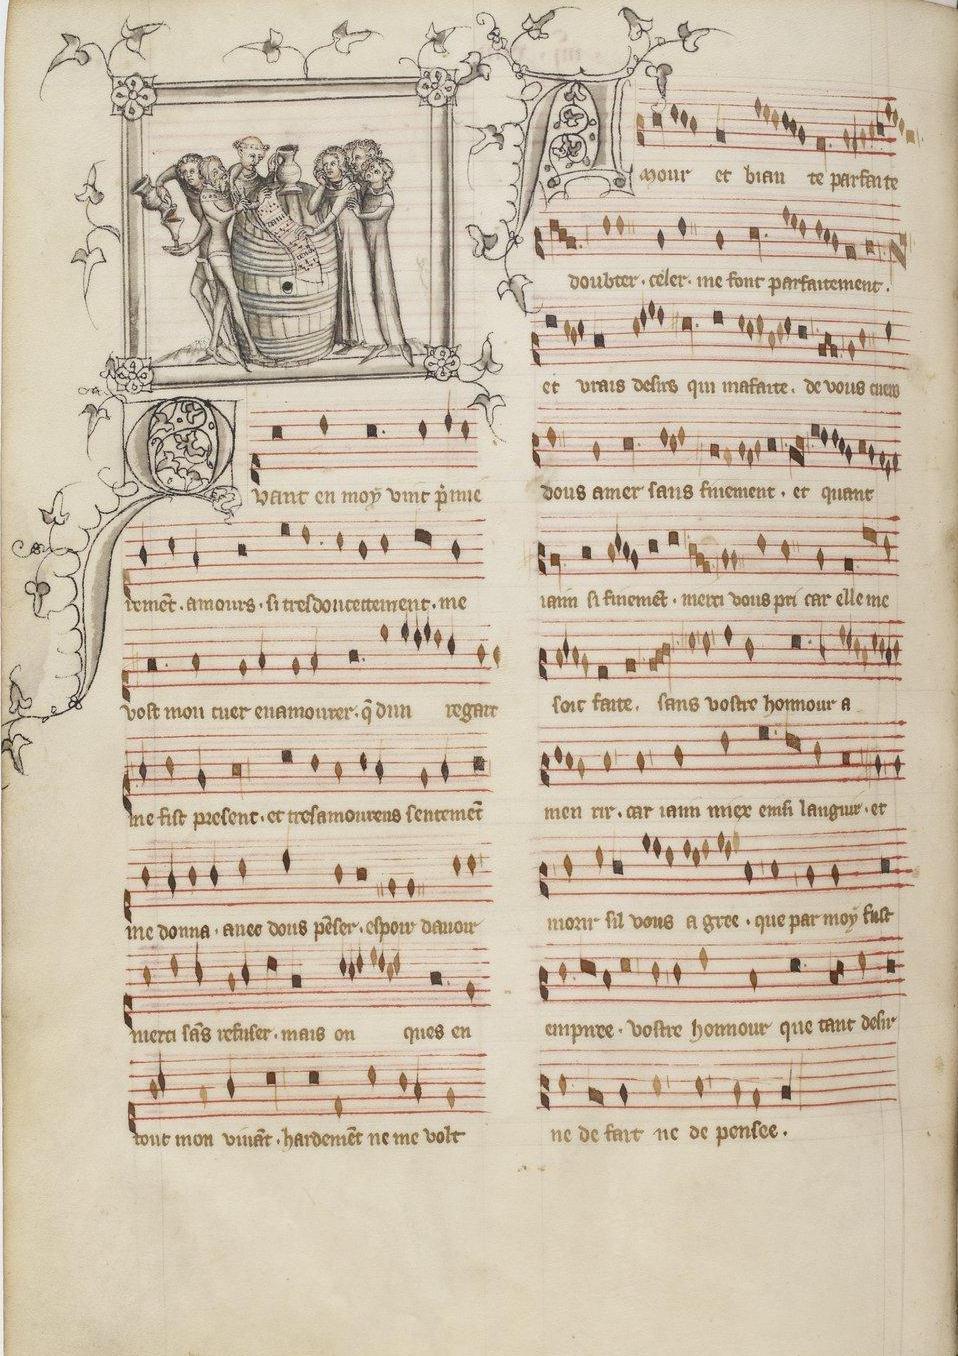 Quant en moy vint p̃mie
remẽt · amours · si tresdoucettement · me
vost mon cuer enamourer · q̃ dun regart
me fist present · et tresamoureus sentemẽt
me donna · auec dous pẽser · espoir dauoir
merci sãs refuser · mais on ques en
tout mon viuãt · hardemẽt ne me volt
Amour et biau te parfaite
doubter · celer · me font parfaitement ·
et vrais desirs qui mafaite · de vous cuers
dous amer sans finement · et quant
iaim si finemẽt · merci vous pri car elle me
soit faite · sans vostre honnour a
men rir · car iaim miex einsi languir · et
morir sil vous a gree · que par moy fust
empiree · vostre honnour que tant desir
ne de fait ne de pensee ·